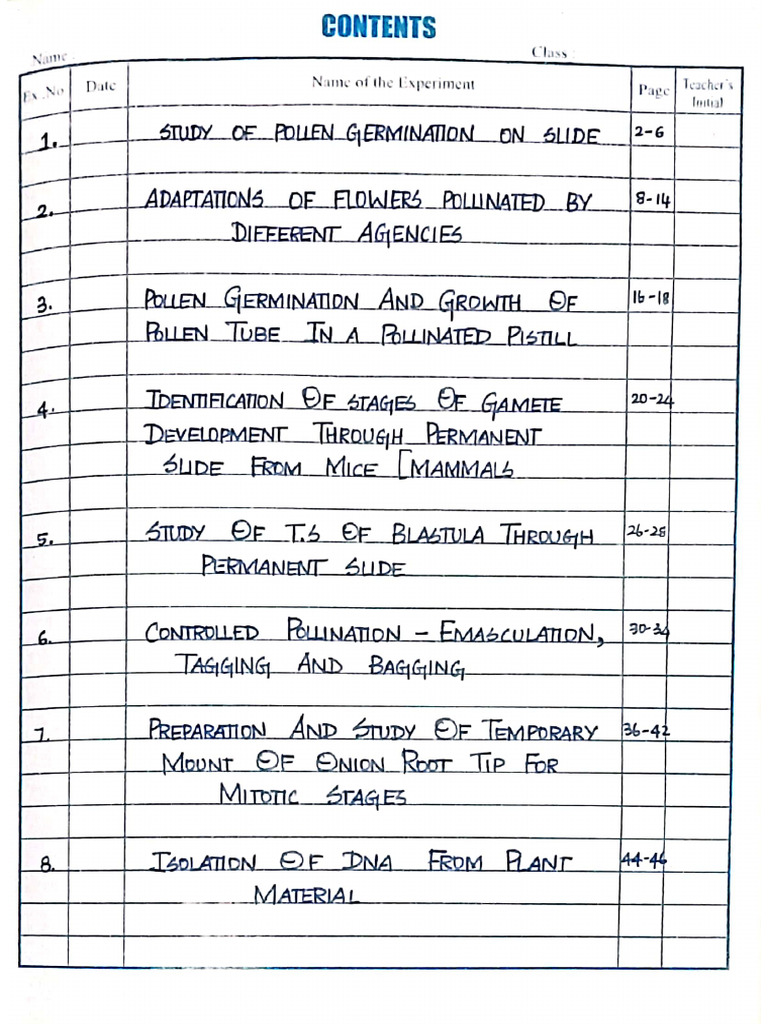 CONTENTS
Name : Class :
Ex. No Date Name of the Experiment Page Teacher's Initial
1. STUDY OF POLLEN GERMINATION ON SLIDE 2-6
2. ADAPTATIONS OF FLOWERS POLLINATED BY 8-14
DIFFERENT AGENCIES
3. POLLEN GERMINATION AND GROWTH OF 16-18
POLLEN TUBE IN A POLLINATED PISTILL
4. IDENTIFICATION OF STAGES OF GAMETE 20-24
DEVELOPMENT THROUGH PERMANENT
SLIDE FROM MICE [MAMMALS
5. STUDY OF T.S OF BLASTULA THROUGH 26-28
PERMANENT SLIDE
6. CONTROLLED POLLINATION - EMASCULATION, 30-34
TAGGING AND BAGGING
7. PREPARATION AND STUDY OF TEMPORARY 36-42
MOUNT OF ONION ROOT TIP FOR
MITOTIC STAGES
8. ISOLATION OF DNA FROM PLANT 44-46
MATERIAL